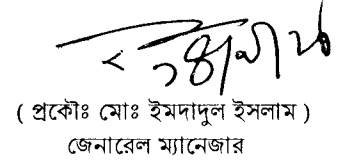 ( প্রকৌঃ মোঃ ইমদাদুল ইসলাম )
জেনারেল ম্যানেজার